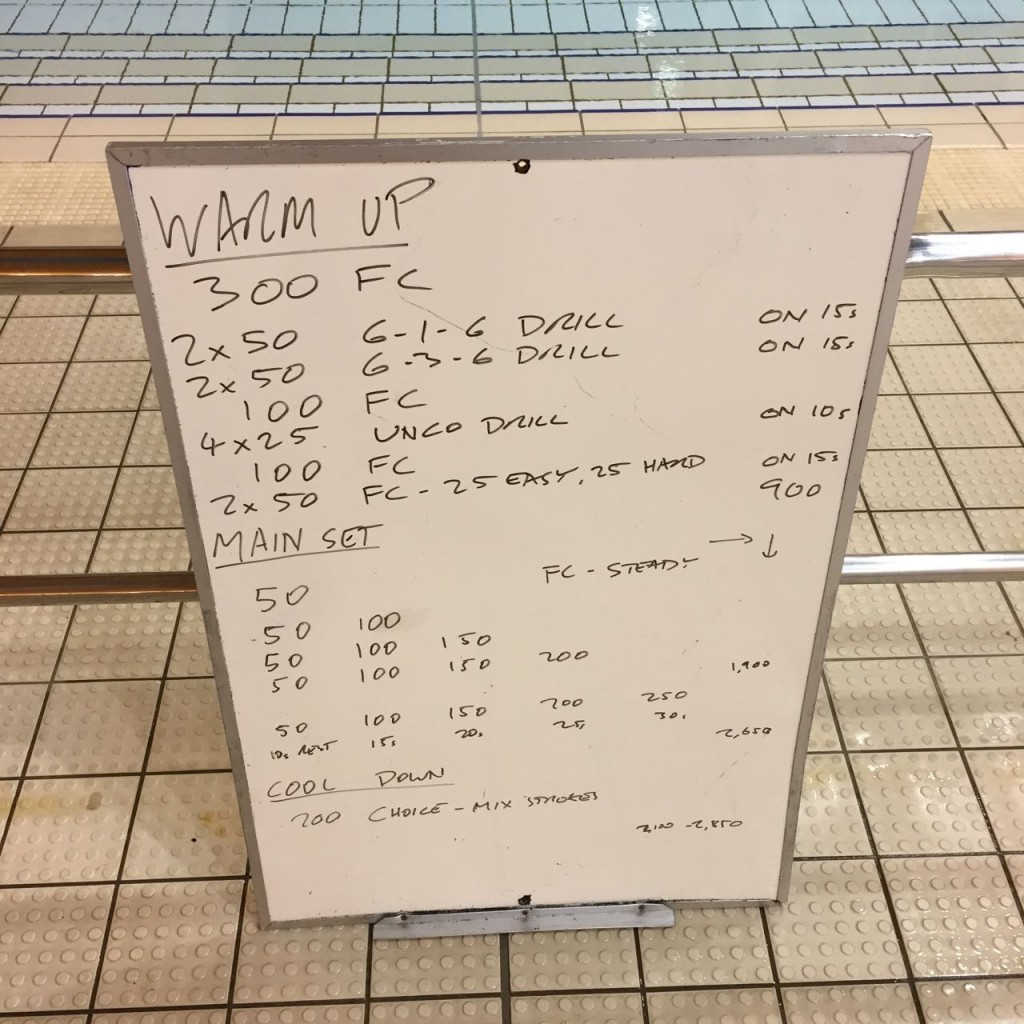 WARM UP
300 FC
2x50 6-1-6 DRILL ON 15s
2x50 6-3-6 DRILL ON 15s
100 FC
4x25 UNCO DRILL ON 10s
100 FC
2x50 FC - 25 EASY, 25 HARD ON 15s
900
MAIN SET → ↓
50 FC - STEADY
50 100
50 100 150
50 100 150 200 1,900
50 100 150 200 250
10s REST 15s 20s 25s 30s 2,650
COOL DOWN
200 CHOICE - MIX STROKES
2,100 - 2,850